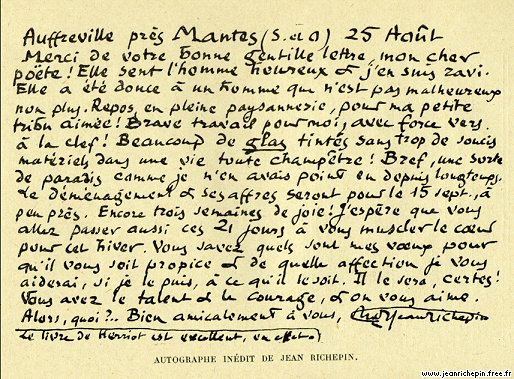 Auffreville près Mantes (S. et O) 25 Août
Merci de votre bonne gentille lettre, mon cher
poète ! Elle sent l'homme heureux & j'en suis ravi.
Elle a été douce à un homme qui n'est pas malheureux
non plus. Repos, en pleine paysannerie, pour ma petite
tribu aimée ! Brave travail pour moi, avec force vers
à la clef ! Beaucoup de glas tintés sans trop de soucis
matériels dans une vie toute champêtre ! Bref, une sorte
de paradis comme je n'en avais point eu depuis longtemps.
Le déménagement & ses affres seront pour le 15 sept., à
peu près. Encore trois semaines de joie ! J'espère que vous
allez passer aussi ces 21 jours à vous muscler le cœur
pour cet hiver. Vous savez quels sont mes vœux pour
qu'il vous soit propice & de quelle affection je vous
aiderai, si je le puis, à ce qu'il le soit. Il le sera, certes !
Vous avez le talent & le courage, & on vous aime.
Alors, quoi ?.. Bien amicalement à vous, Jean Richepin
Le livre de Herriot est excellent, en effet.
AUTOGRAPHE INÉDIT DE JEAN RICHEPIN.
www.jeanrichepin.free.fr